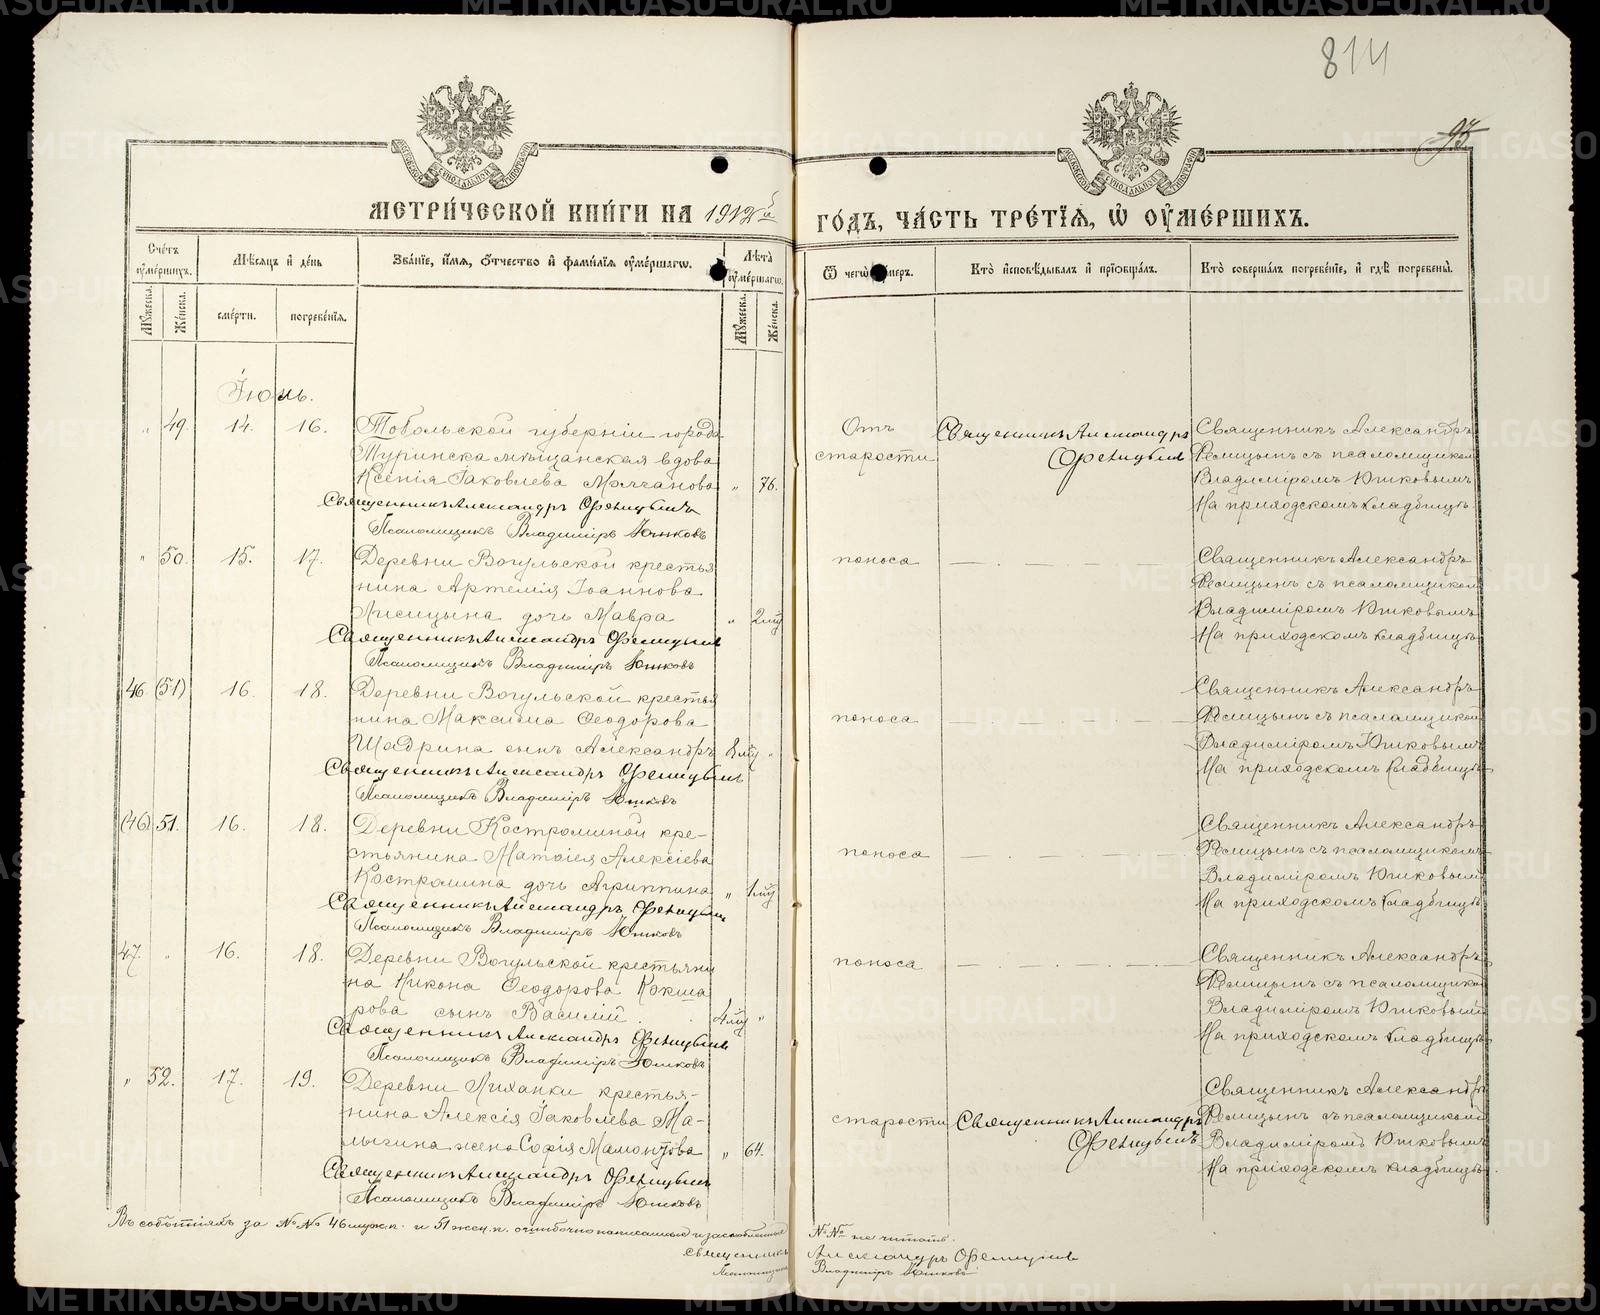 METRIKI.GASO-URAL.RU
814
95
МОСКОВСКОЙ СѴНОДАЛЬНОЙ ТИПОГРАФІИ
МОСКОВСКОЙ СѴНОДАЛЬНОЙ ТИПОГРАФІИ
МЕТРИ́ЧЕСКОЙ КНИ́ГИ НА 1912й ГО́ДЪ, ЧА́СТЬ ТРЕ́ТІѦ, Ѡ҆ ОУ҆МЕ́РШИХЪ.
Сче́тъ оумершихъ.
Мѣ́сяцъ и де́нь
Зва́ніе, и́мя, о́тчество и фами́лія оуме́ршагѡ.
Лѣ́та оуме́ршагѡ.
Ѿ чегѡ̀ оу́меръ.
Кто̀ исповѣ́дывалъ и пріѡбща́лъ.
Кто̀ соверша́лъ погребе́ніе, и гдѣ̀ погребены̀.
Мꙋ́жеска.
Же́нска.
сме́рти.
погребе́нія.
Мꙋ́жеска.
Же́нска.
Іюль.
„ 49. 14. 16. Тобольской губерніи города
Туринска мѣщанская вдова
Ксенія Іаковлева Молчанова „ 76.
Священникъ Александръ Ѳелицынъ
Псаломщикъ Владиміръ Ютковъ
Отъ
старости
Священникъ Александръ
Ѳелицынъ
Священникъ Александръ
Ѳелицынъ съ псаломщикомъ
Владиміромъ Ютковымъ
На приходскомъ кладбищѣ.
„ 50. 15. 17. Деревни Вогульской крестья
нина Артемія Іоаннова
Лисицына дочь Мавра „ 2 м҃ц
Священникъ Александръ Ѳелицынъ
Псаломщикъ Владиміръ Ютковъ
поноса — . — . —
Священникъ Александръ
Ѳелицынъ съ псаломщикомъ
Владиміромъ Ютковымъ
На приходскомъ кладбищѣ
46 (51) 16. 18. Деревни Вогульской крестья
нина Максима Ѳеодорова
Шадрина сынъ Александръ 8 м҃ц „
Священникъ Александръ Ѳелицынъ
Псаломщикъ Владиміръ Ютковъ
поноса — . — . —
Священникъ Александръ
Ѳелицынъ съ псаломщикомъ
Владиміромъ Ютковымъ
На приходскомъ кладбищѣ
(46) 51. 16. 18. Деревни Костроминой кре-
стьянина Матѳіея Алексіева
Костромина дочь Агриппина „ 1 м҃ц
Священникъ Александръ Ѳелицынъ
Псаломщикъ Владиміръ Ютковъ
поноса — . — . —
Священникъ Александръ
Ѳелицынъ съ псаломщикомъ
Владиміромъ Ютковымъ
На приходскомъ кладбищѣ
47. „ 16. 18. Деревни Вогульской крестьяни
на Никона Ѳеодорова Кокша
рова сынъ Василій 4 м҃ц „
Священникъ Александръ Ѳелицынъ
Псаломщикъ Владиміръ Ютковъ
поноса — . — . —
Священникъ Александръ
Ѳелицынъ съ псаломщикомъ
Владиміромъ Ютковымъ
На приходскомъ кладбищѣ
„ 52. 17. 19. Деревни Лиханки крестья-
нина Алексія Іаковлева Ма-
лыгина жена Софія Мамонтова „ 64.
Священникъ Александръ Ѳелицынъ
Псаломщикъ Владиміръ Ютковъ
старости
Священникъ Александръ
Ѳелицынъ
Священникъ Александръ
Ѳелицынъ съ псаломщикомъ
Владиміромъ Ютковымъ
На приходскомъ кладбищѣ.
Въ событіяхъ за №№ 46 муж.п. и 51 жен.п. ошибочно написанные и заскобленные №№ не читать.
Священникъ Александръ Ѳелицынъ
Псаломщикъ Владиміръ Ютковъ